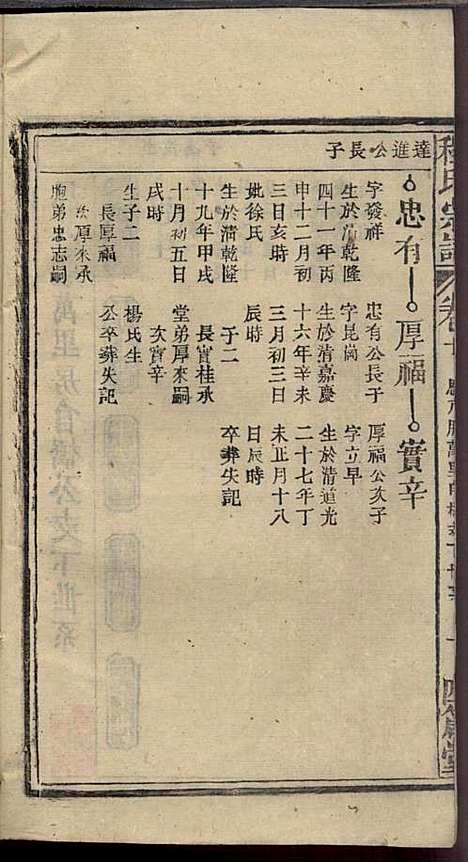 程氏宗譜
卷十
四箴堂
達進公長子
忠有
厚福
實辛
字發祥
生於清乾隆
四十一年丙
申十二月初
三日亥時
妣徐氏
生於清乾隆
十九年甲戌
十月初五日
戌時
生子二
長厚福
次厚來承
胞弟忠志嗣
忠有公長子
字崑崗
生於清嘉慶
十六年辛未
三月初三日
辰時
子二
長實桂承
堂弟厚來嗣
次實辛
楊氏生
公卒葬失記
厚福公次子
字立早
生於清道光
二十七年丁
未正月十八
日辰時
卒葬失記